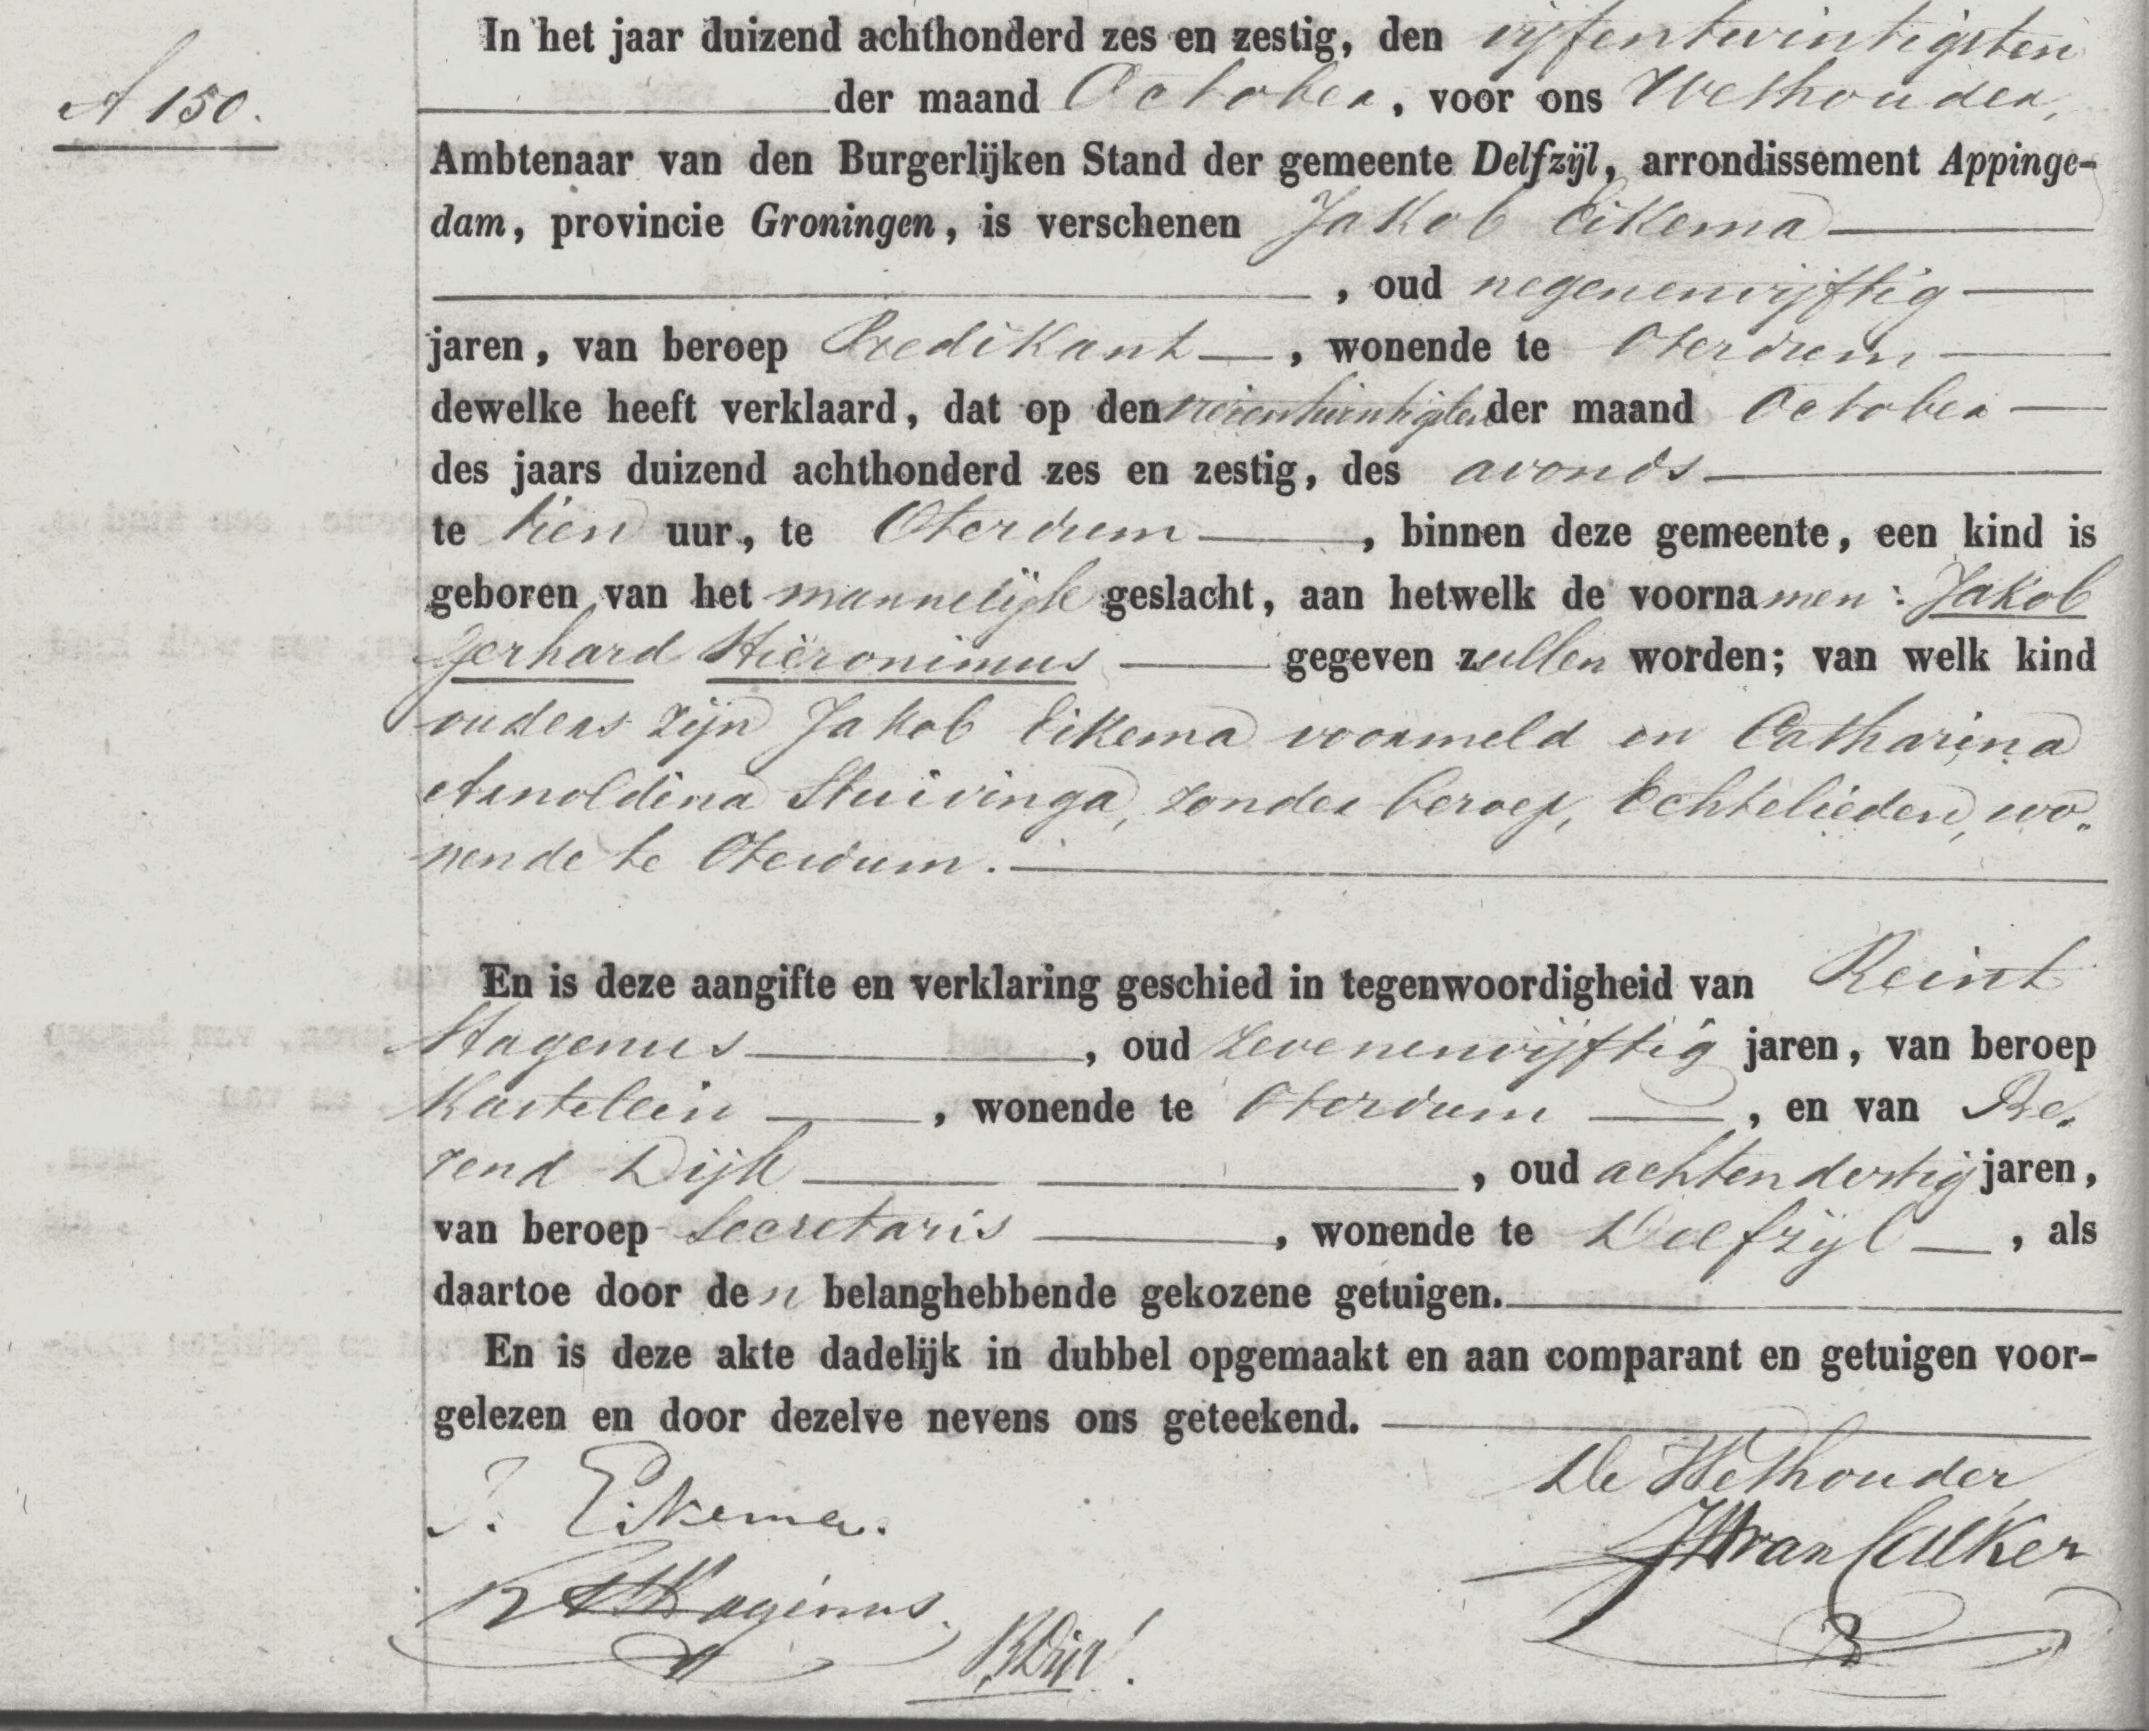 A 150.
In het jaar duizend achthonderd zes en zestig, den vijfentwintigsten
der maand October, voor ons Wethouder,
Ambtenaar van den Burgerlijken Stand der gemeente Delfzijl, arrondissement Appinge-
dam, provincie Groningen, is verschenen Jakob Eikema
, oud negenenvijftig
jaren, van beroep Predikant, wonende te Oterdum
dewelke heeft verklaard, dat op den vierentwintigsten der maand October
des jaars duizend achthonderd zes en zestig, des avonds
te tien uur, te Oterdum, binnen deze gemeente, een kind is
geboren van het mannelijk geslacht, aan hetwelk de voornamen: Jakob
Gerhard Hiëronimus gegeven zullen worden; van welk kind
ouders zijn Jakob Eikema voormeld en Catharina
Arnoldina Stuivinga, zonder beroep, Echtelieden, wo„
nende te Oterdum.
En is deze aangifte en verklaring geschied in tegenwoordigheid van Reint
Hagenus, oud zevenenvijftig jaren, van beroep
Kastelein, wonende te Oterdum, en van Be„
rend Dijk, oud achtendertig jaren,
van beroep Secretaris, wonende te Delfzijl, als
daartoe door den belanghebbende gekozene getuigen.
En is deze akte dadelijk in dubbel opgemaakt en aan comparant en getuigen voor-
gelezen en door dezelve nevens ons geteekend.
De Wethouder
J. Eikema.
van Calker
Hagenus.
BDijk